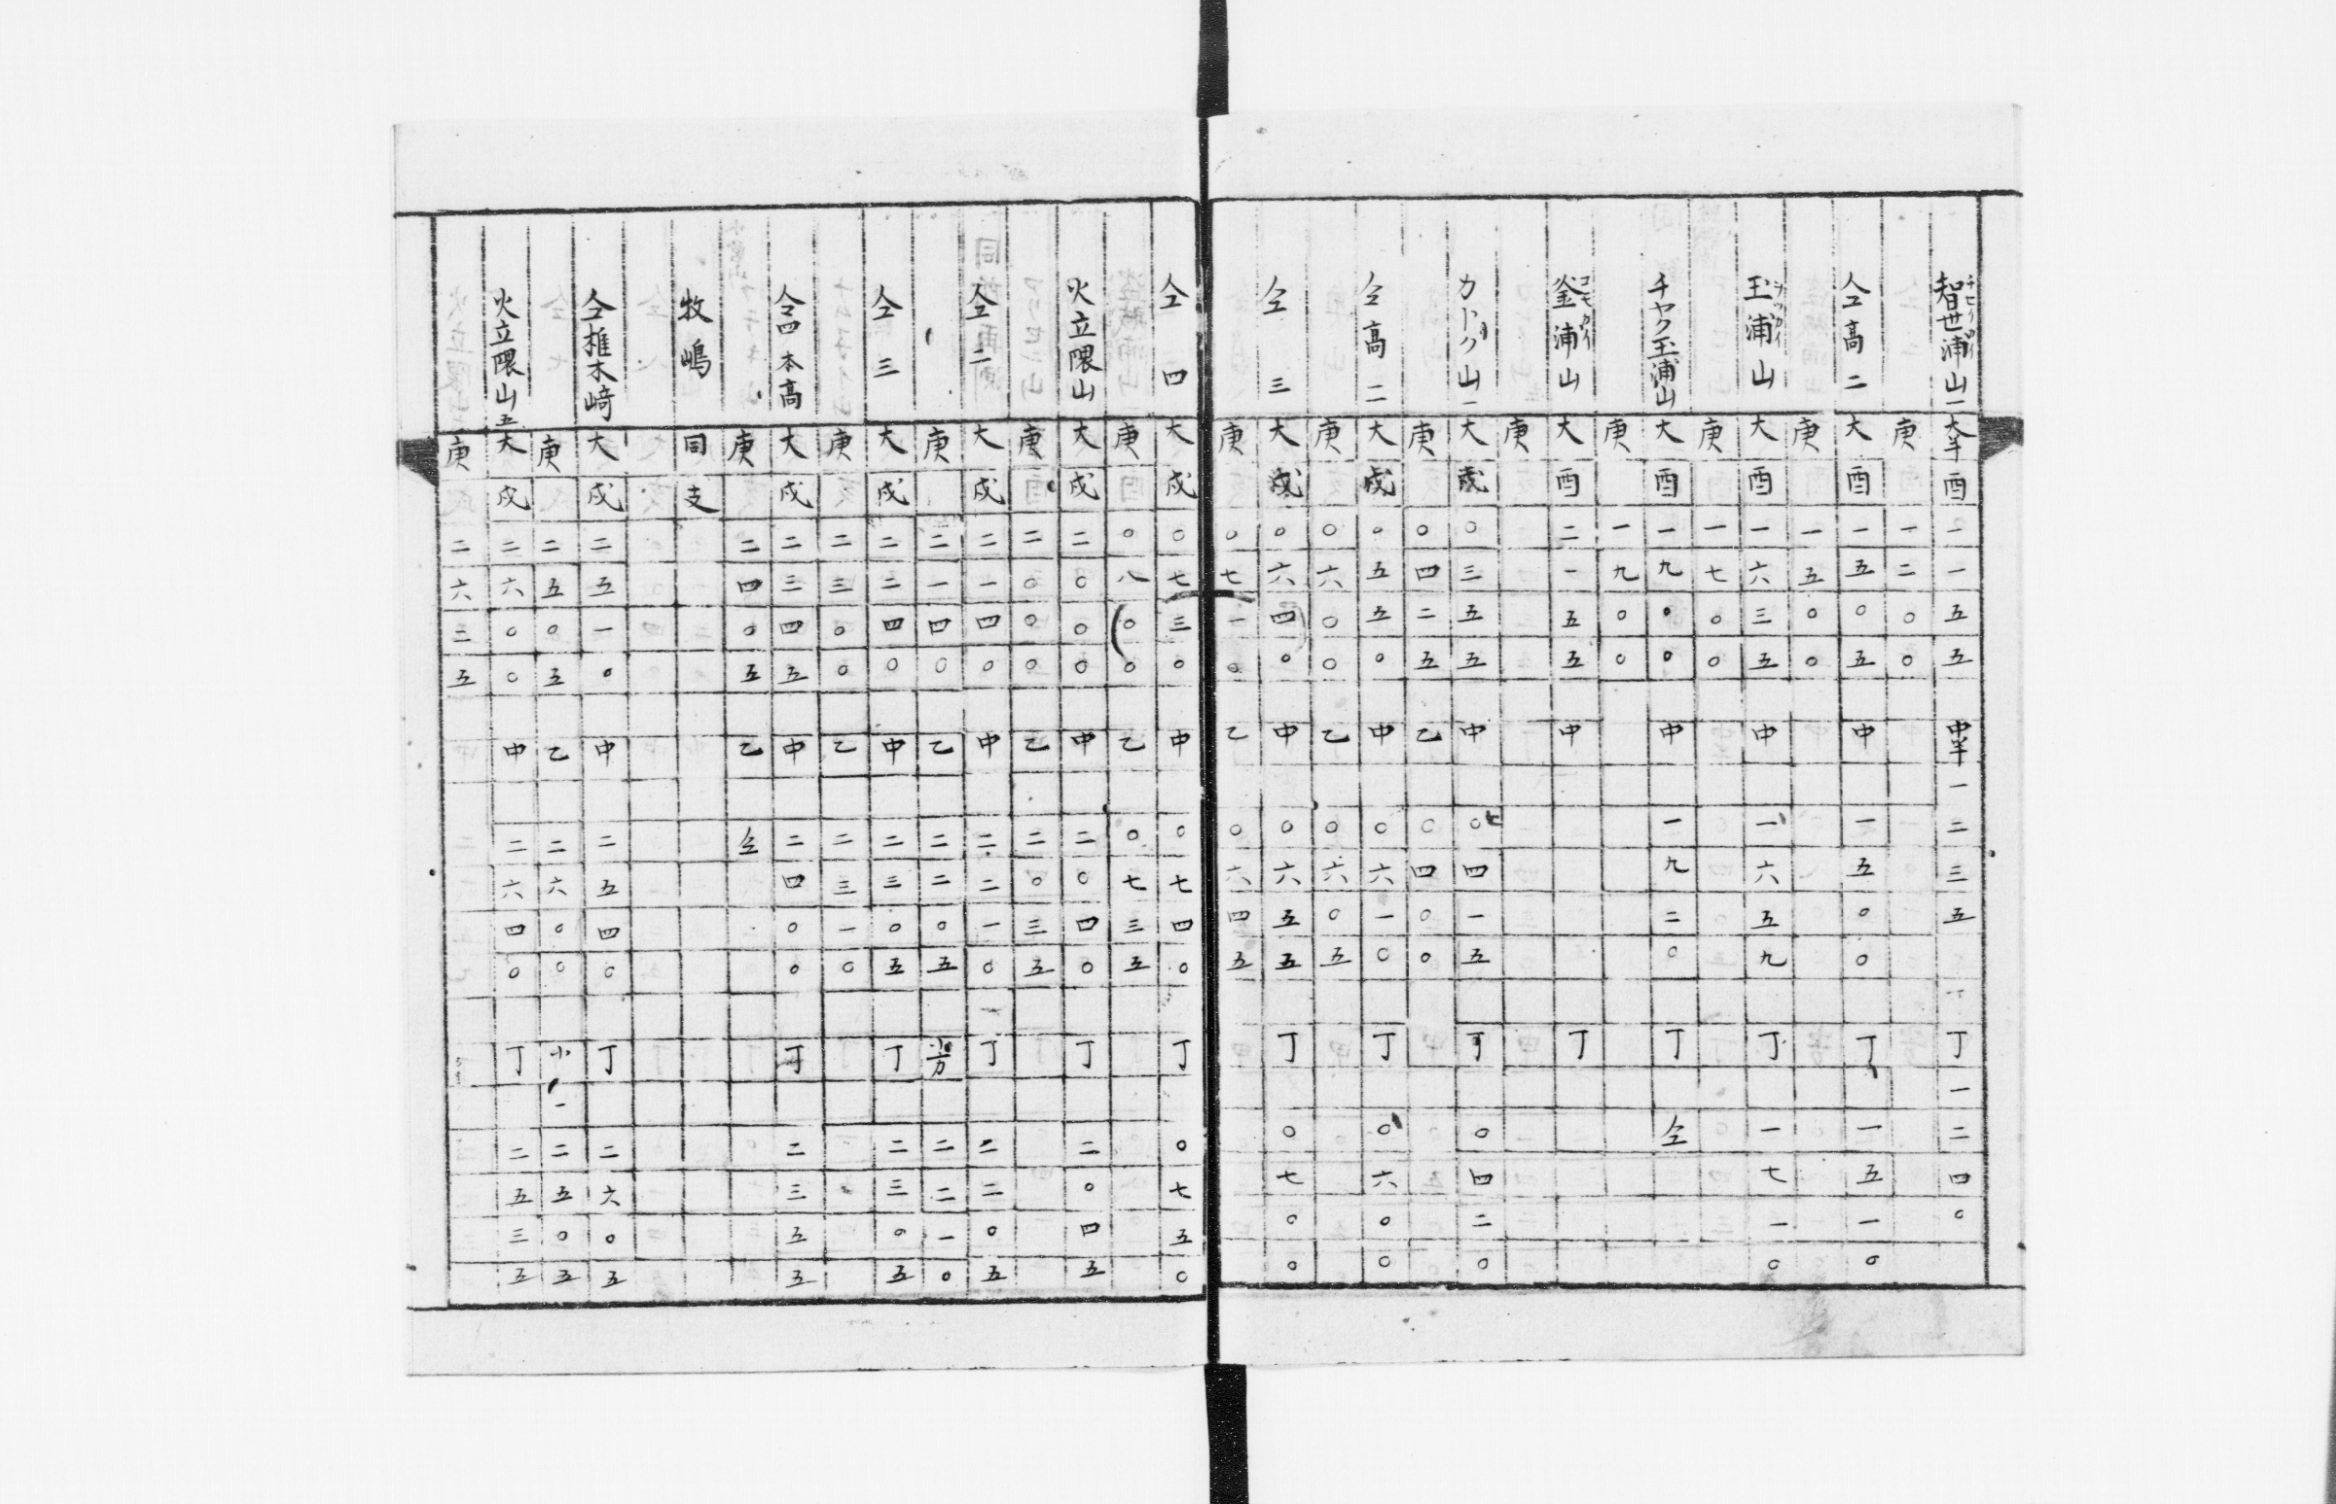 智世浦山一 チセノウライ 大半 酉 一一五五 中半 一二三五 丁 一二四〇
庚 一二〇〇
仝高二 大 酉 一五〇五 中 一五〇〇 丁 一五一〇
庚 一五〇〇
玉浦山 大 酉 一六三五 中 一六五九 丁 一七一〇
庚 一七〇〇
チヤク玉浦山 大 酉 一九〇〇 中 一九二〇 丁 仝
庚 一九〇〇
釜浦山 大 酉 二一五五 中 丁
庚
カトク山一 大 戌 〇三五五 中 〇四一五 丁 〇四二〇
庚 〇四二五 乙 〇四〇〇
仝高二 大 戌 〇五五〇 中 〇六一〇 丁 〇六〇〇
庚 〇六〇〇 乙 〇六〇五
仝三 大 戌 〇六四〇 中 〇六五五 丁 〇七〇〇
庚 〇七一〇 乙 〇六四五
仝四 大 戌 〇七三〇 中 〇七四〇 丁 〇七五〇
庚 〇八〇〇 乙 〇七三五
火立隈山 大 戌 二〇〇〇 中 二〇四〇 丁 二〇四五
庚 二〇〇〇 乙 二〇三五
仝二 大 戌 二一四〇 中 二二一〇 丁 二二〇五
庚 二一四〇 乙 二二〇五 小方 二二一〇
仝三 大 戌 二二四〇 中 二三〇五 丁 二三〇五
庚 二三〇〇 乙 二三一〇
仝四本高 大 戌 二三四五 中 二四〇〇 丁 二三五五
庚 二四〇五 乙 仝
牧嶋 同 支
仝椎木崎 大 戌 二五一〇 中 二五四〇 丁 二六〇五
庚 二五〇五 乙 二六〇〇 小 一二五〇五
火立隈山五 大 戌 二六〇〇 中 二六四〇 丁 二五三五
庚 二六三五